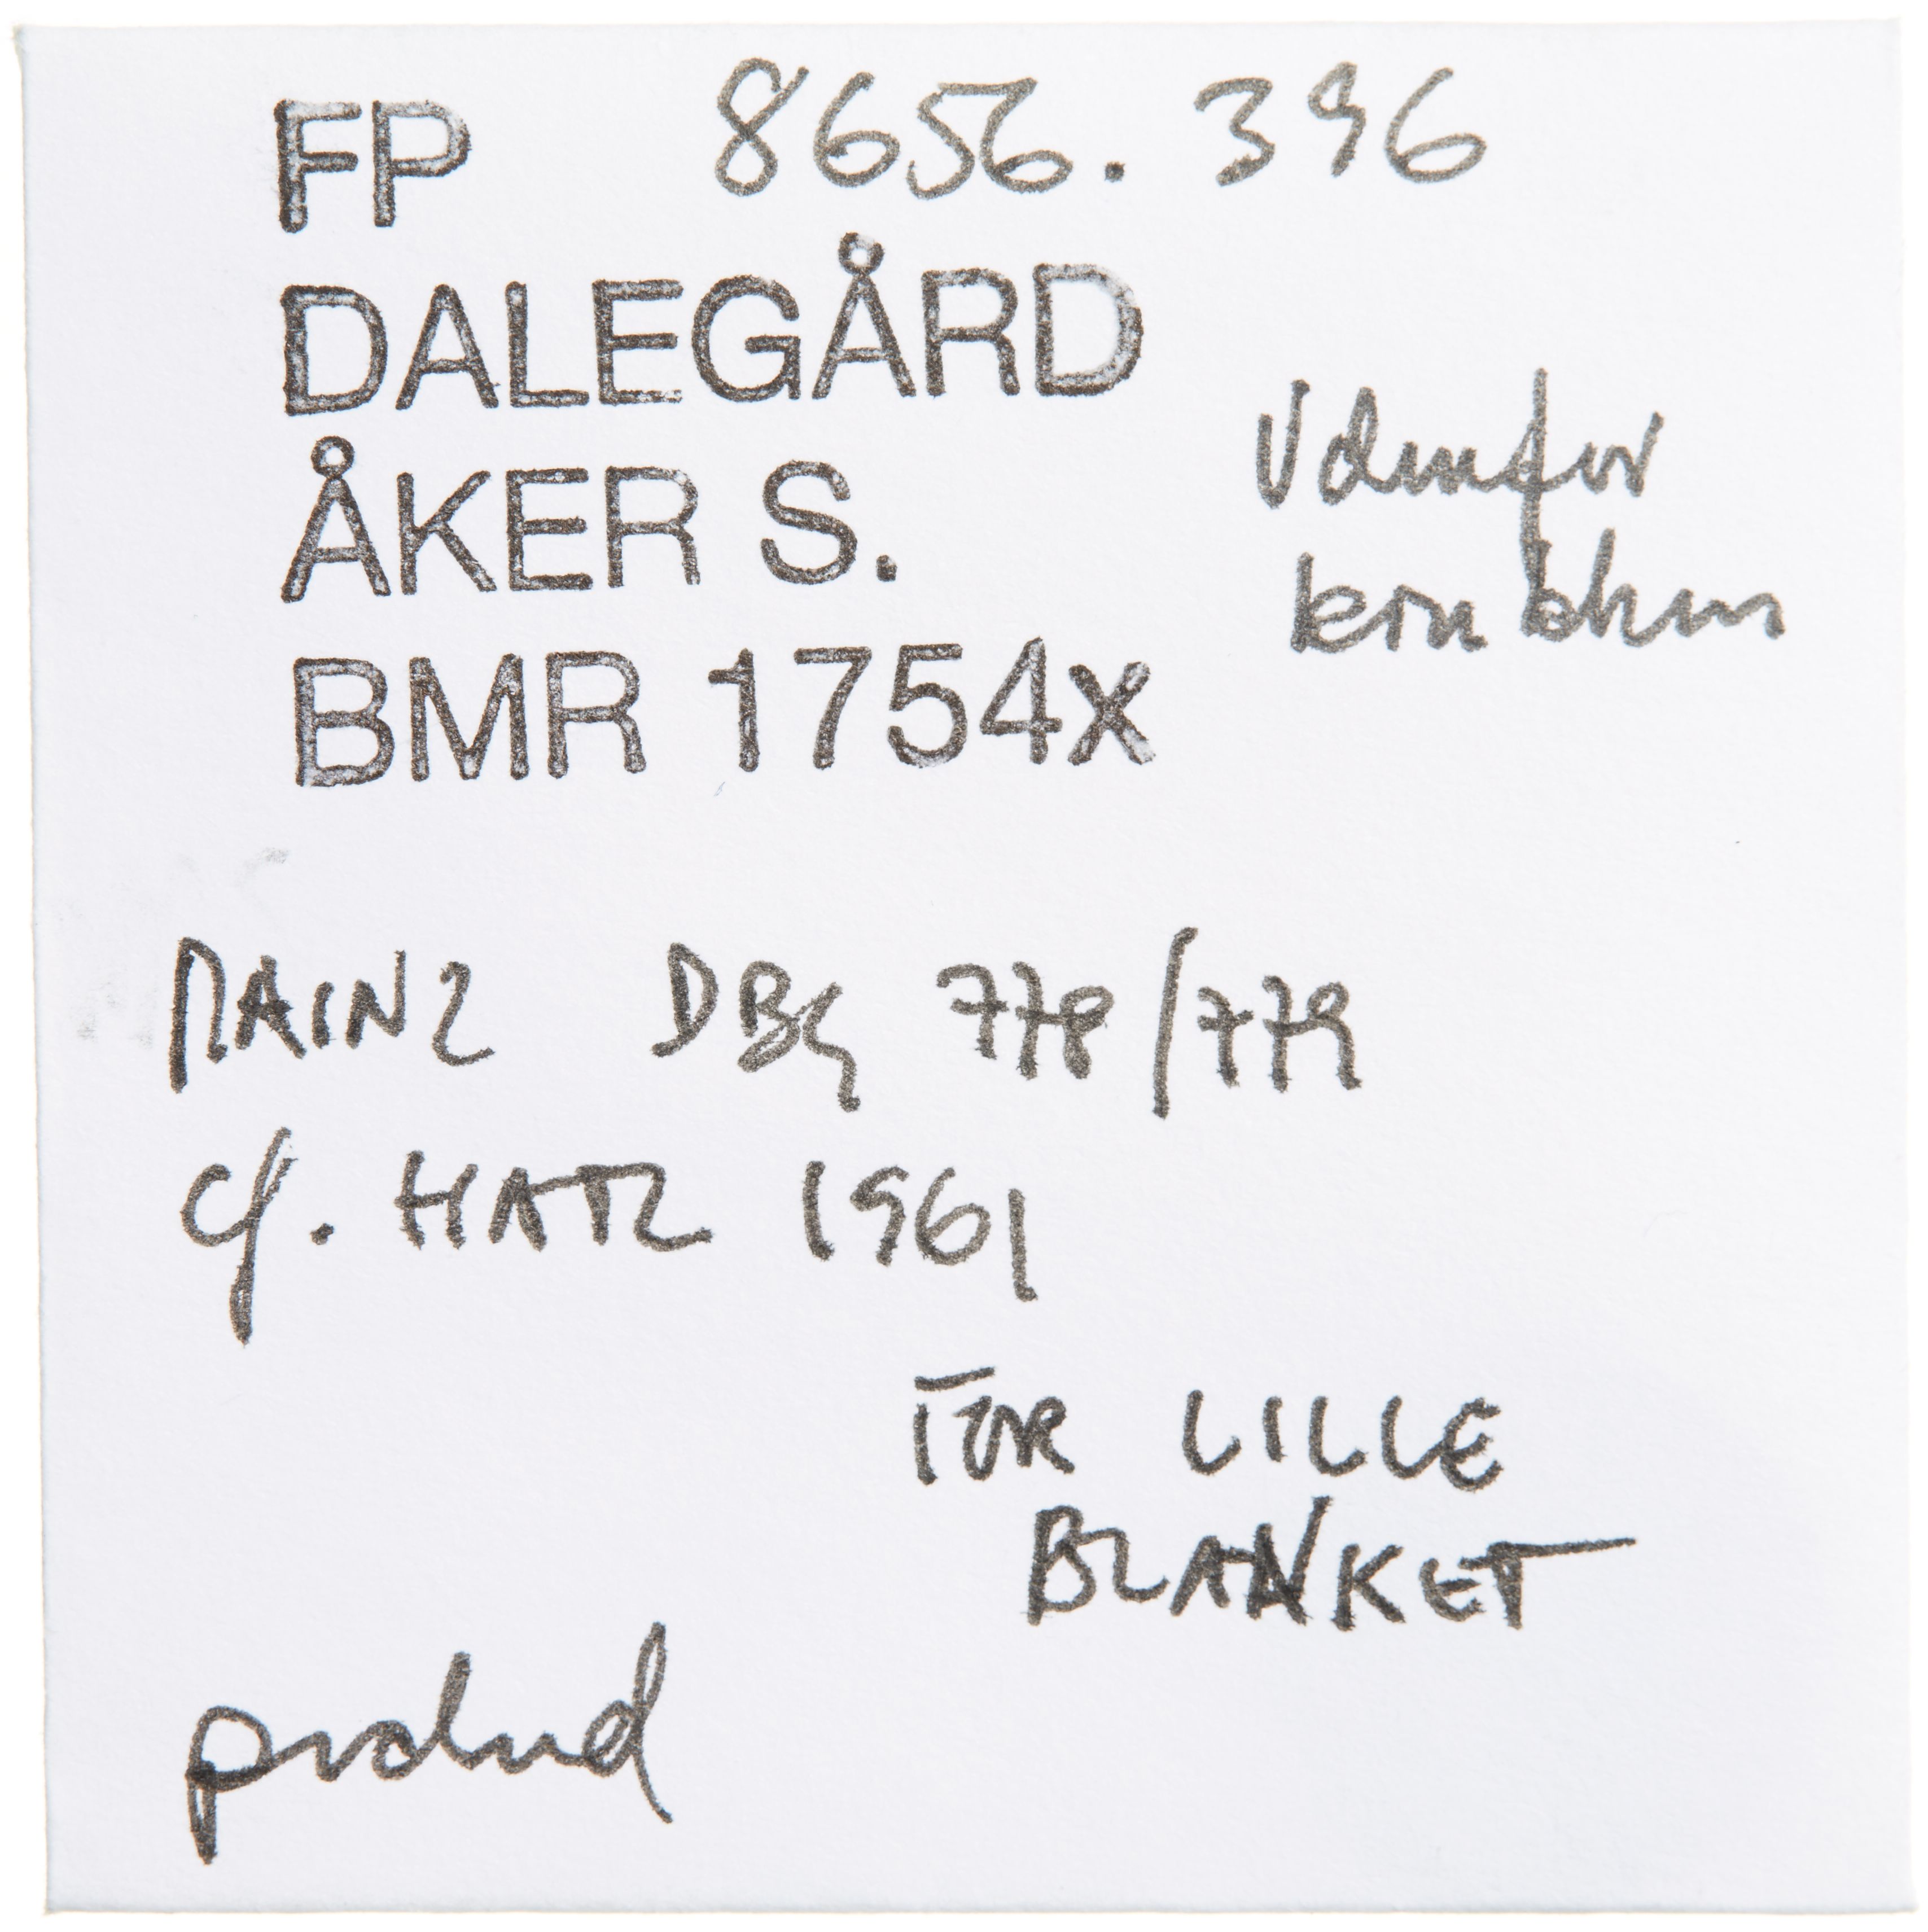 FP 8656.396
DALEGÅRD
ÅKER S.
Udenfor
BMR 1754x
MAINZ DBG 778/779
cf. HATZ 1961
FOR LILLE
BLANKET